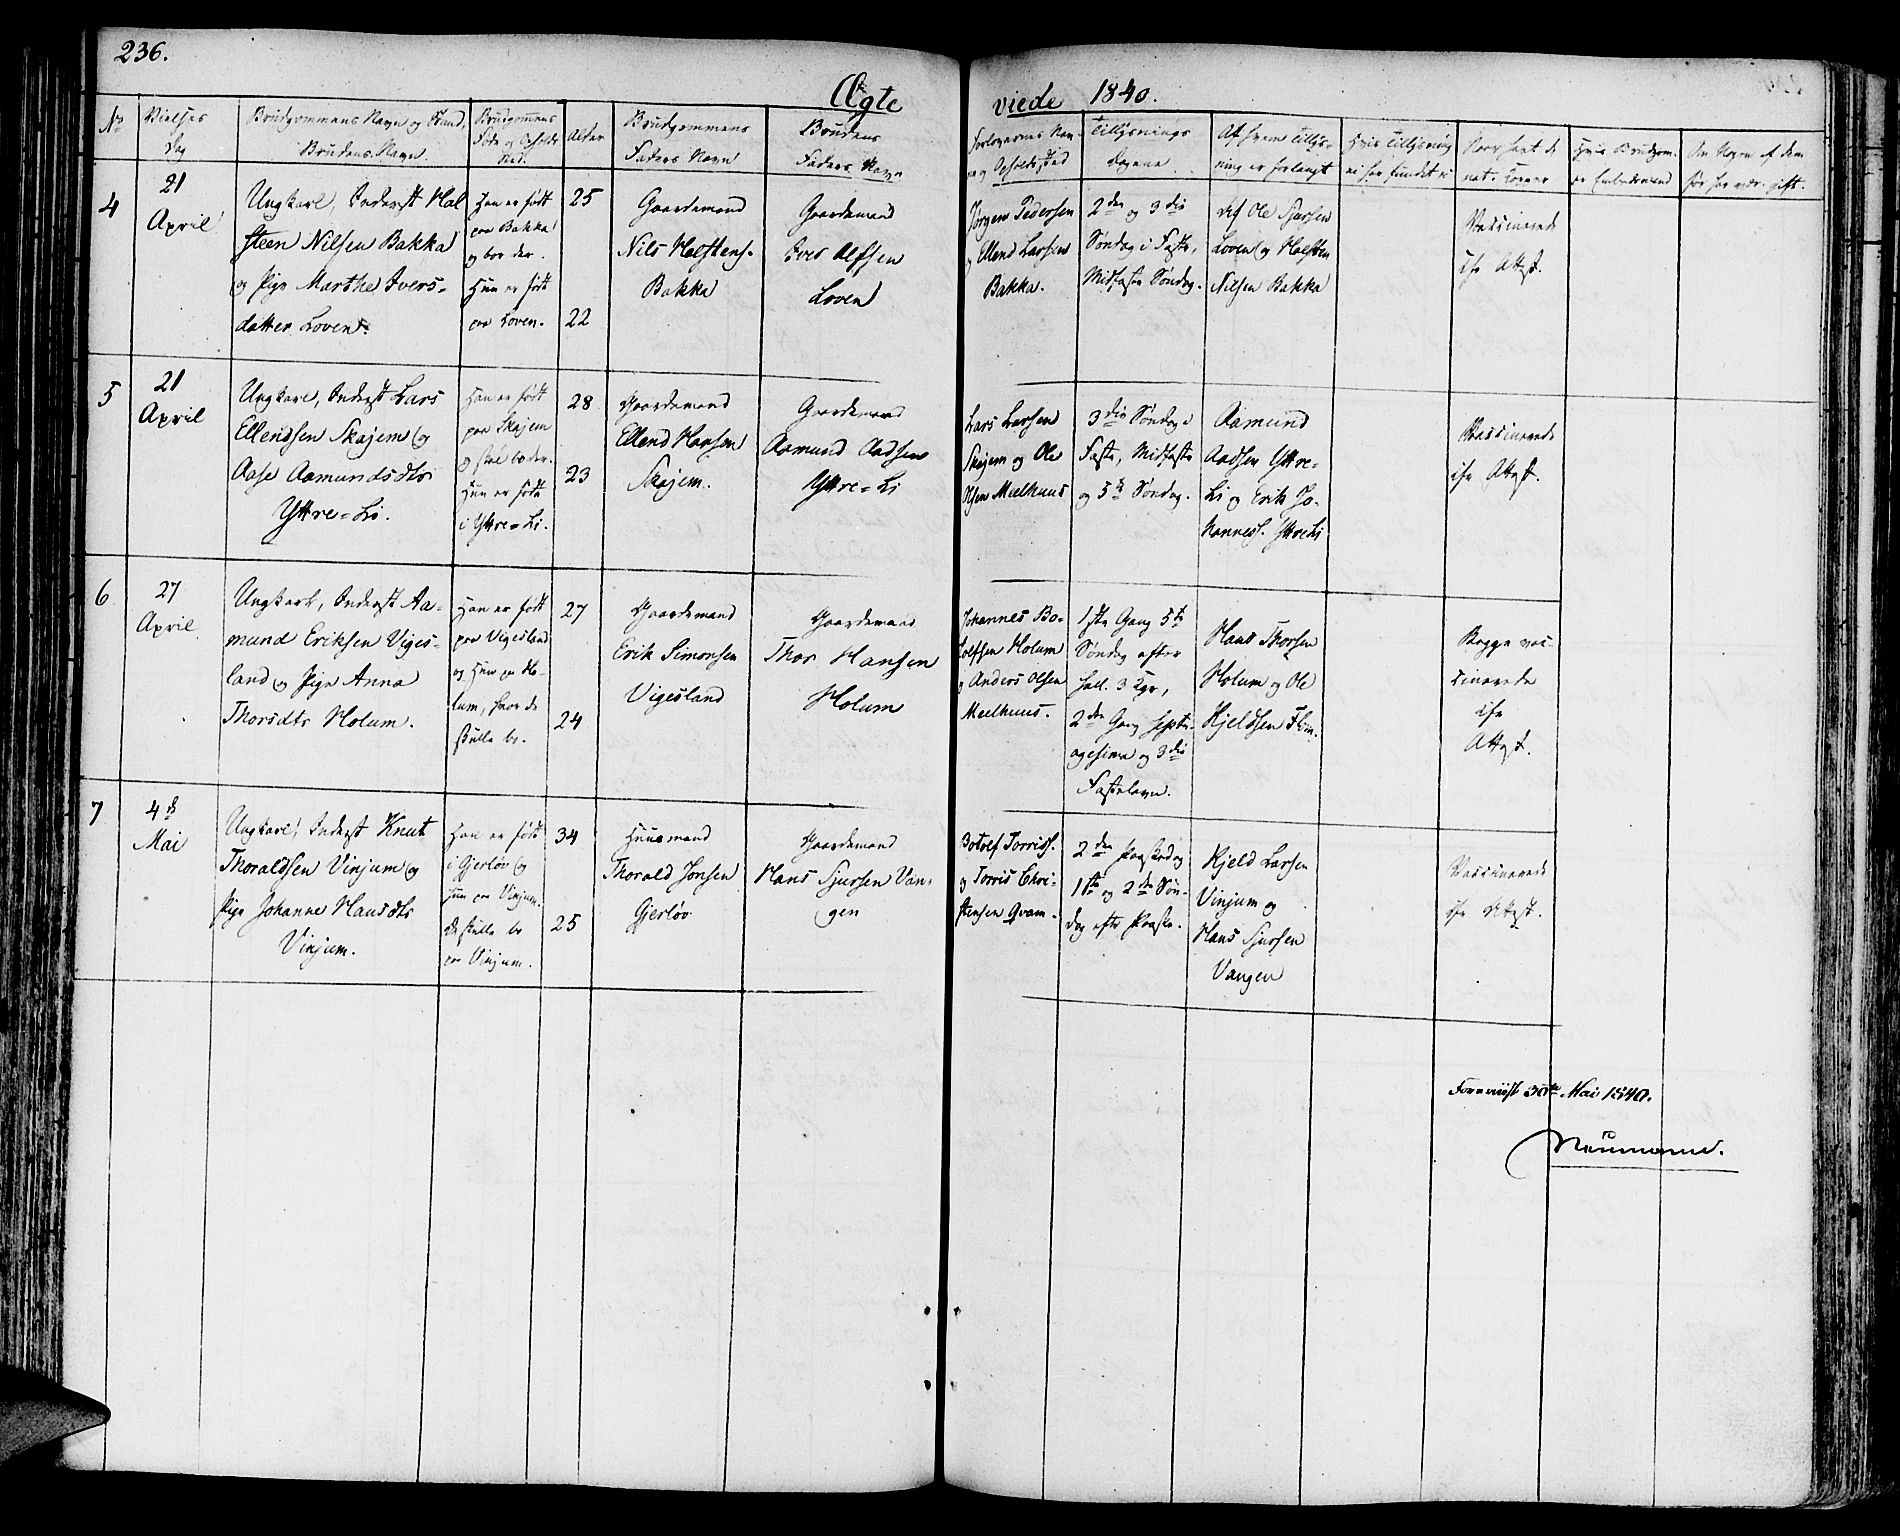 236.
Ægte viede 1840.
No
Vielses
Dag
Brudgommens Navn og Stand,
Brudens Navn.
Brudgommens
Føde og Opholds
Sted.
Alder
Brudgommens
Faders Navn
Brudens
Faders Navn
Forlovernes Nav-
ne og Opholdssted
Tillysnings
Dagene
Af hvem Tillys-
ning er forlangt
Hvis Tillysning
ei har fundet
Naar havt de
nat. Kopper
Hvis Brudgom.
er Embedsmand
Om Nogen af dem
før har været gift.
4
21
April
Ungkarl, Inderst Hal
steen Nilsen Bakka
og Pige Marthe Ivers-
datter Loven.
Han er født
paa Bakka
og boe der.
Hun er født
paa Loven.
25
22
Gaardemand
Nils Halstens.
Bakka
Gaardemand
Iver Olfsen
Loven
Jørgen Pedersen
og Ellend Larsen
Bakka.
2den og 3die
Søndag i Faste,
Midfaste Søndag.
Af Ole Sjursen
Loven og Halsten
Nilsen Bakka
Vaccinerede
ifø Attest.
5
21
April
Ungkarl, Inderst Lars
Ellendsen Skajem og
Aase Aamundsdtr
Yttre-Li.
Han er født
paa Skajem
og skal bo der.
Hun er født
i Yttre-Li.
28
23
Gaardemand
Ellend Hansen
Skajem.
Gaardemand
Aamund Aadsen
Yttre-Li
Lars Larsen
Skajem og Ole
Olsen Meelhuus
3die Søndag i
Faste, Midfaste
og 5te Søndag.
Aamund
Aadsen Yttre-
Li og Erik Jo-
hannes. Yttre Li
Vaccinerede
ifø Attest.
6
27
April
Ungkarl, Inderst Aa-
mund Eriksen Viges-
land og Pige Anna
Thorsdtr Holum.
Han er født
paa Vigesland
og Hun paa Ho-
lum, hvor de
skulle bo.
27
24
Gaardemand
Erik Simonsen
Vigesland
Gaardemand
Thor Hansen
Holum
Johannes Bo-
tolfsen Holum
og Anders Olsen
Meelhuus.
1ste Gang 5te
Søndag efter
hell. 3 Kgr,
2den Gang Septu-
agesima og 3die
Fastelavn.
Hans Thorsen
Holum og Ole
Kjeldsen
Begge vac-
cinerede
ifø
Attest.
7
4de
Mai
Ungkarl, Inderst Knut
Thoraldsen Vinjum og
Pige Johanne Hansdtr
Vinjum.
Han er født
i Gjerløv og
Hun paa Vinjum.
De skulle bo
paa Vinjum.
34
25
Huusmand
Thorald Jonsen
Gjerløv
Gaardemand
Hans Sjursen Van-
gen
Botolf Torriss.
og Torris Chri-
stensen Qvam.
2den Paaskedag
1ste og 2den Søn-
dag efter Paaske.
Kjeld Larsen
Vinjum og
Hans Sjursen
Vangen
Vaccinerede
ifø Attest.
Foreviist 30te Mai 1840.
Neumann.